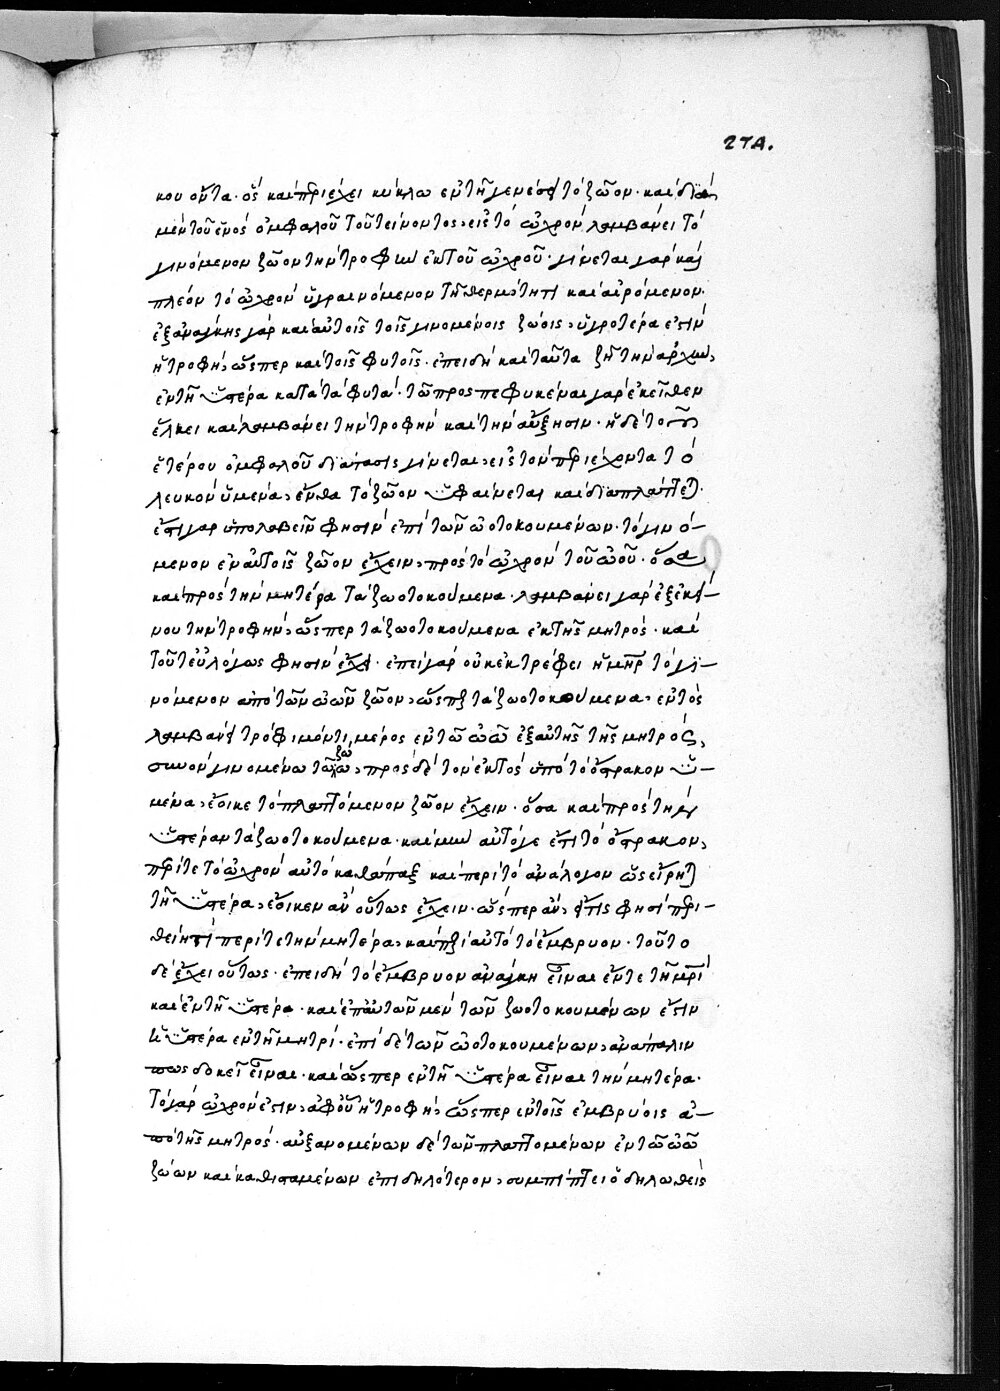 27Α.
κου ὄντα· ὃς καὶ περιέχει κύκλω ἐν τῆ γενέσει τὸ ζῶον· καὶ διὰ
μὲν τοῦ ἑνὸς ὀμφαλοῦ τοῦ τείνοντος εἰς τὸ ὠχρὸν λαμβάνει τὸ
γινόμενον ζῶον τὴν τροφὴν ἐκ τοῦ ὠχροῦ· γίνεται γὰρ καὶ
πλέον τὸ ὠχρὸν ὑγραινόμενον τῆ θερμότητι καὶ αἰρόμενον·
ἐξανάγκης γὰρ καὶ αὐτοῖς τοῖς γινομένοις ζώοις, ὑγροτέρα ἐστὶν
ἡ τροφὴ, ὥσπερ καὶ τοῖς φυτοῖς· ἐπειδὴ καὶ ταῦτα ζῆ τὴν ἀρχὴν,
ἐν τῆ ὑστέρα κατὰ τὰ φυτά· τῶ προσπεφυκέναι γὰρ ἐκεῖθεν
ἕλκει καὶ λαμβάνει τὴν τροφὴν καὶ τὴν αὔξησιν· ἡ δὲ τοῦ
ἑτέρου ὀμφαλοῦ διάτασις γίνεται, εἰς τὸν περιέχοντα τὸ
λευκὸν ὑμένα, ἔνθα τὸ ζῶον ὑφαίνεται καὶ διαπλάττεται·
ἔστι γὰρ ὑπολαβεῖν φησὶν ἐπὶ τῶν ὠοτοκουμένων· τὸ γινό-
μενον ἐν αὐτοῖς ζῶον ἔχειν, πρὸς τὸ ὠχρὸν τοῦ ὠοῦ· ὅσα
καὶ πρὸς τὴν μητέρα τὰ ζωοτοκούμενα· λαμβάνει γὰρ ἐξ ἐκεί-
νου τὴν τροφὴν, ὥσπερ τὰ ζωοτοκούμενα ἐκ τῆς μητρὸς· καὶ
τοῦτ εὐλόγως φησὶν ἔχει· ἐπεὶ γὰρ οὐκ ἐκτρέφει ἡ μήτηρ τὸ γι-
νόμενον ἀπὸ τῶν ὠῶν ζῶον, ὥσπερ τὰ ζωοτοκούμενα, ἐντὸς
λαμβάνει τρόφιμόν τι μέρος ἐν τῶ ὠῶ ἐξ αὐτῆς τῆς μητρὸς,
συνὸν γινομένω τῶ ζώω, πρὸς δὲ τὸν ἐκτὸς ὑπὸ τὸ ὄστρακον ὑ-
μένα, ἔοικε τὸ πλαττόμενον ζῶον ἔχειν· ὅσα καὶ πρὸς τὴν
ὑστέραν τὰ ζωοτοκούμενα· καὶ μὴν αὐτόγε ἔτι τὸ ὄστρακον,
περί τε τὸ ὠχρὸν αὐτὸ καθάπαξ καὶ περὶ τὸ ἀνάλογον ὡς εἴρηται
τῆ ὑστέρα, ἔοικεν ἂν οὕτως ἔχειν· ὥσπερ ἂν, εἴ τις φησὶ περι-
θείη τι περί τε τὴν μητέρα, καὶ περὶ αὐτὸ τὸ ἔμβρυον· τοῦτο
δὲ ἔχει οὕτως· ἐπειδὴ τὸ ἔμβρυον ἀνάγκη εἶναι ἔν τε τῆ μητρὶ
καὶ ἐν τῆ ὑστέρα· καὶ ἐπ αὐτῶν μὲν τῶν ζωοτοκουμένων ἔστιν
ἡ ὑστέρα ἐν τῆ μητρί· ἐπὶ δὲ τῶν ὠοτοκουμένων, ἀνάπαλιν
πως δοκεῖ εἶναι· καὶ ὥσπερ ἐν τῆ ὑστέρα εἶναι τὴν μητέρα·
τὸ γὰρ ὠχρὸν ἐστὶν, ἀφ οὗ ἡ τροφὴ, ὥσπερ ἐν τοῖς ἐμβρύοις ἀ-
πὸ τῆς μητρὸς· αὐξανομένων δὲ τῶν πλαττομένων ἐν τῶ ὠῶ
ζώων καὶ καθισταμένων ἐπιδηλότερον, συμπίπτει ὁ δηλωθεὶς